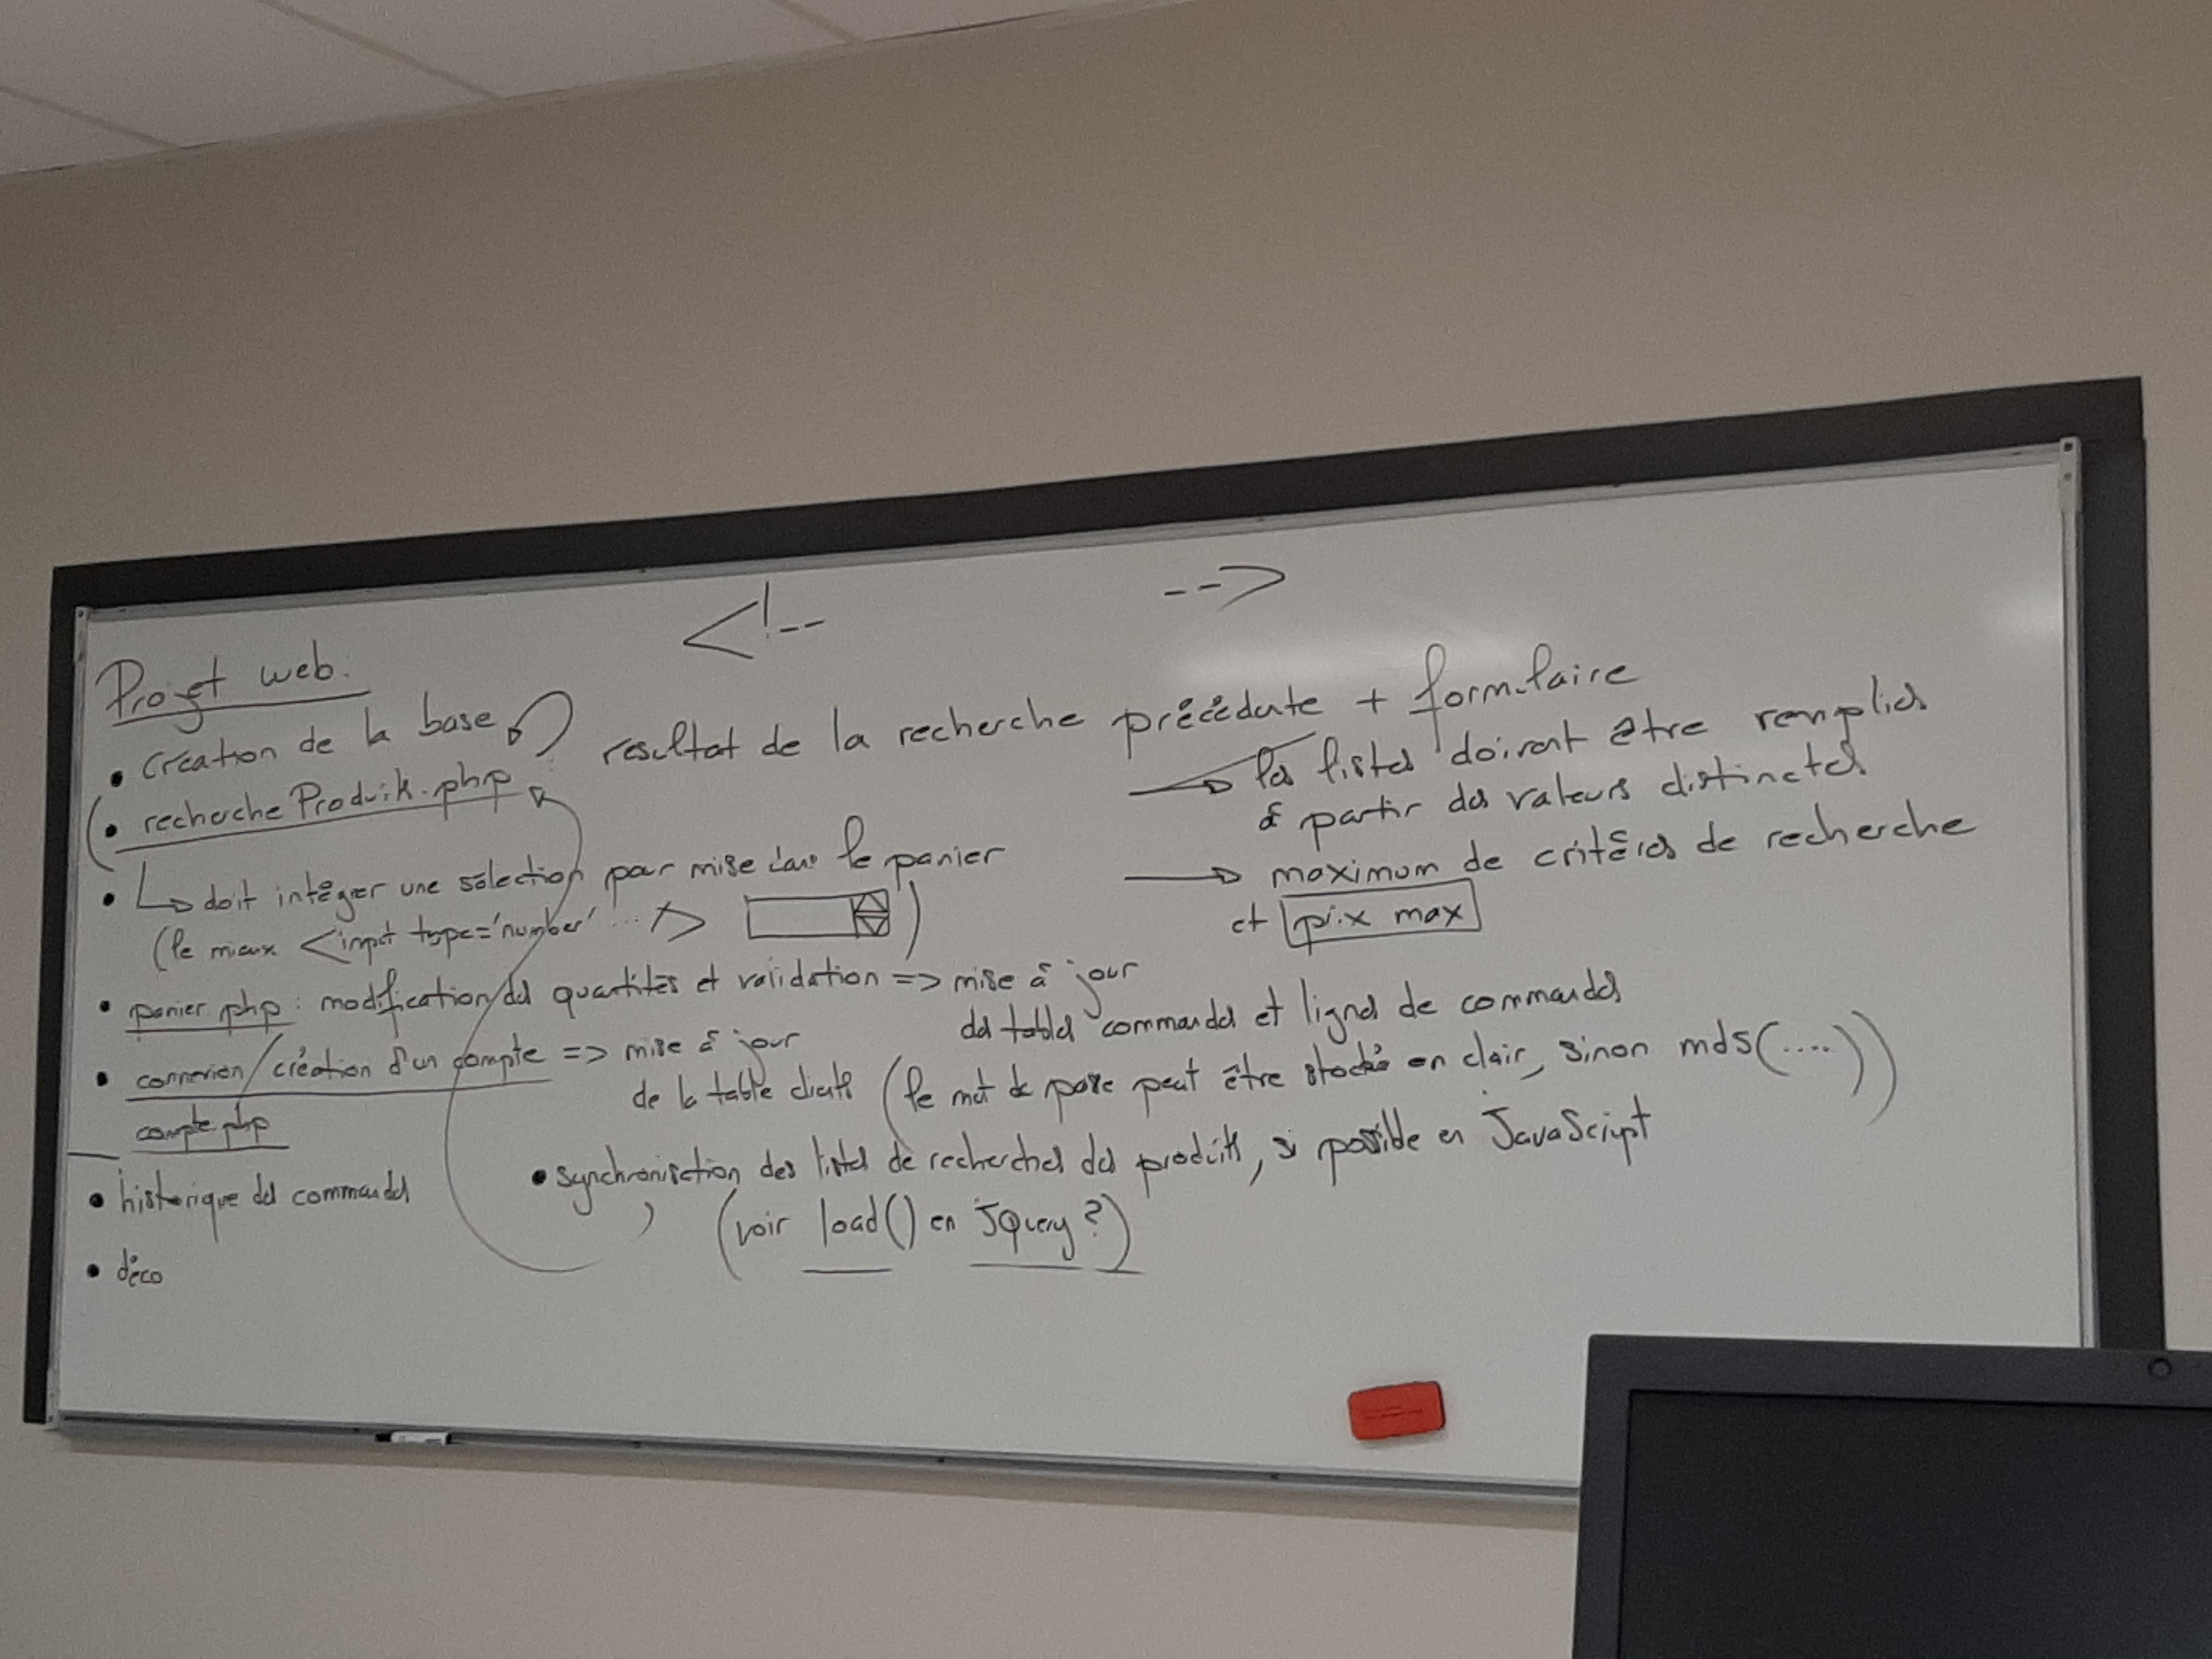 <!-- -->
Projet web.
• création de la base
• recherche Produits.php résultat de la recherche précédente + formulaire
→ les listes doivent être remplies
à partir des valeurs distinctes
→ maximum de critères de recherche
et prix max
• ↳ doit intégrer une sélection pour mise dans le panier
(le mieux <input type='number' ... /> )
• panier.php : modification des quantités et validation => mise à jour
des tables commandes et lignes de commandes
• connexion/création d'un compte => mise à jour
de la table clients (le mot de passe peut être stocké en clair, sinon md5(....))
compte.php
• historique des commandes
• synchronisation des listes de recherches des produits, si possible en JavaScript
(voir load() en JQuery?)
• déco